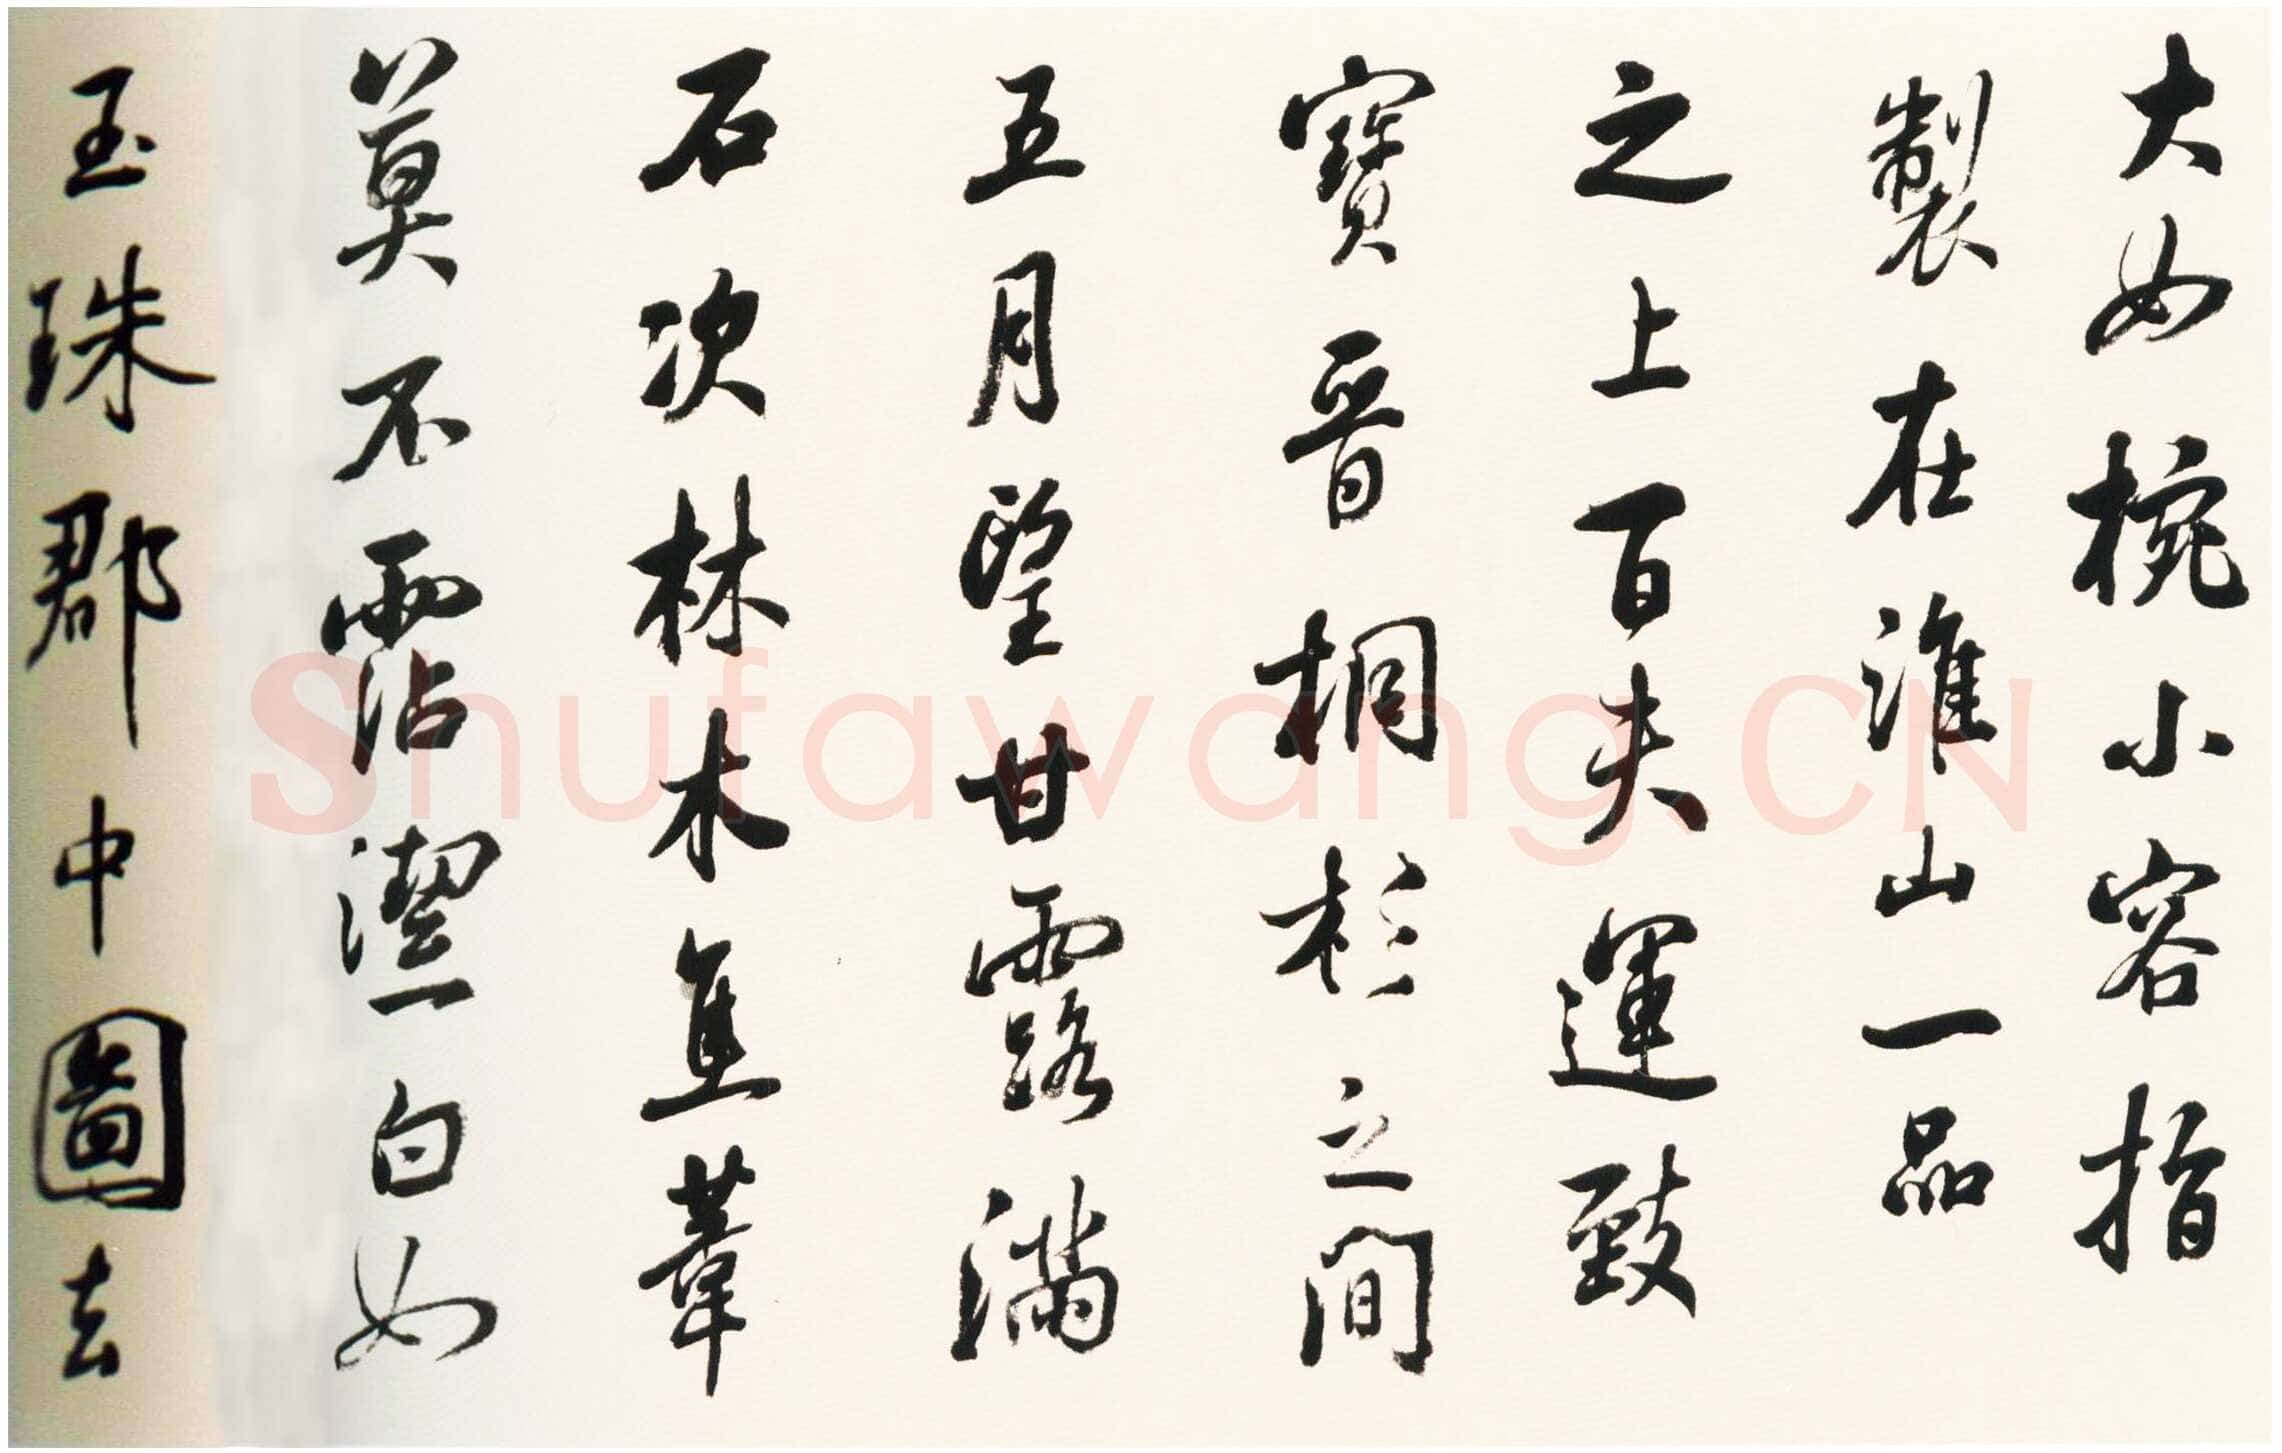 大如椀小容指
製在淮山一品
之上百夫運致
寶晉桐杉之間
五月望甘露滿
石次林木焦葦
莫不霑潔白如
玉珠郡中圖去
Shufawang.CN